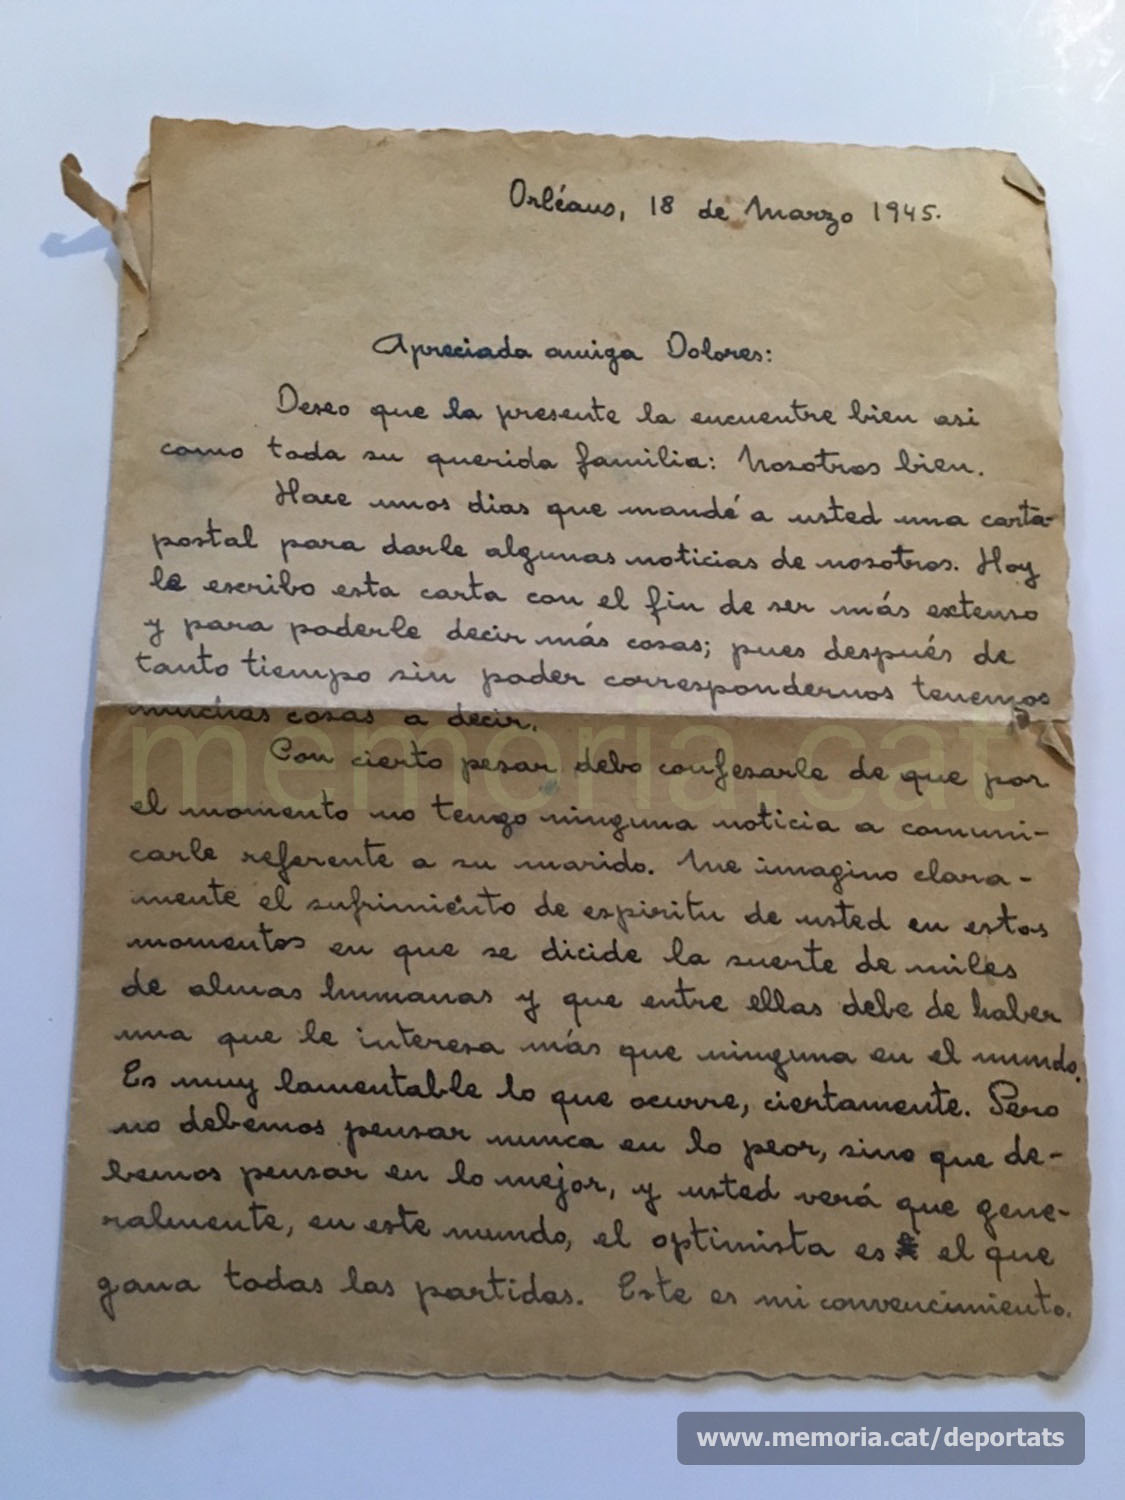 Orléans, 18 de Marzo 1945.
Apreciada amiga Dolores:
Deseo que la presente la encuentre bien asi
como toda su querida familia: Nosotros bien.
Hace unos dias que mandé a usted una carta-
postal para darle algunas noticias de nosotros. Hoy
le escribo esta carta con el fin de ser más extenso
y para poderle decir más cosas; pues después de
tanto tiempo sin poder correspondernos tenemos
muchas cosas a decir.
Con cierto pesar debo confesarle de que por
el momento no tengo ninguna noticia a comuni-
carle referente a su marido. Me imagino clara-
mente el sufrimiento de espiritu de usted en estos
momentos en que se dicide la suerte de miles
de almas humanas y que entre ellas debe de haber
una que le interesa más que ninguna en el mundo.
Es muy lamentable lo que ocurre, ciertamente. Pero
no debemos pensar nunca en lo peor, sino que de-
bemos pensar en lo mejor, y usted verá que gene-
ralmente, en este mundo, el optimista es el que
gana todas las partidas. Este es mi convencimiento.
memoria.cat
www.memoria.cat/deportats